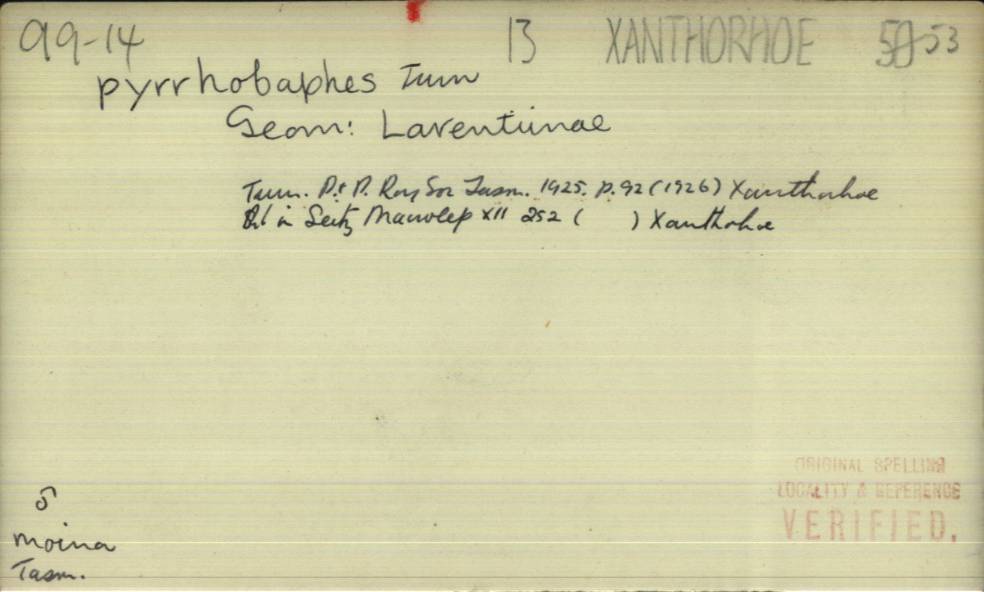 99-14 13 XANTHORHOE 53
pyrrhobaphes Turn
Geom: Larentiinae
Turn. P. & P. Roy Soc Tasm. 1925. p. 92 (1926) Xanthorhoe
in Seitz Macrolep XII 252 ( ) Xanthorhoe
ORIGINAL SPELLING
LOCALITY & REFERENCE
VERIFIED.
Moina
Tasm.